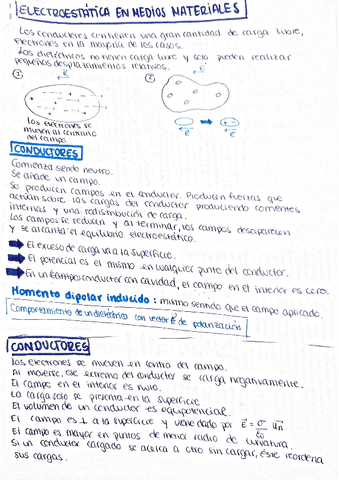 ELECTROESTÁTICA EN MEDIOS MATERIALES
Los conductores contienen una gran cantidad de carga libre,
electrones en la mayoría de los casos.
Los dieléctricos no tienen carga libre y solo pueden realizar
pequeños desplazamientos relativos.
① ②
los electrones se
mueven al contrario
del campo.
CONDUCTORES
Comienza siendo neutro.
Se añade un campo.
Se producen campos en el conductor. Producen fuerzas que
actúan sobre las cargas del conductor produciendo corrientes
internas y una redistribución de carga.
Los campos se reducen y al terminar, los campos desaparecen
y se alcanza el equilibrio electroestático.
El exceso de carga va a la superficie.
El potencial es el mismo en cualquier punto del conductor.
En un campo conductor con cavidad, el campo en el interior es cero.
Momento dipolar inducido: mismo sentido que el campo aplicado.
Comportamiento de un dieléctrico con vector de polarización
CONDUCTORES
Los electrones se mueven en contra del campo.
Al moverse, ese extremo del conductor se carga negativamente.
El campo en el interior es nulo.
La carga solo se presenta en la superficie.
El volumen de un conductor es equipotencial.
El campo es ⊥ a la superficie y viene dado por E⃗ = σ/ε₀ u⃗n
El campo es mayor en puntos de menor radio de curvatura.
Si un conductor cargado se acerca a otro sin cargar, éste reordena
sus cargas.